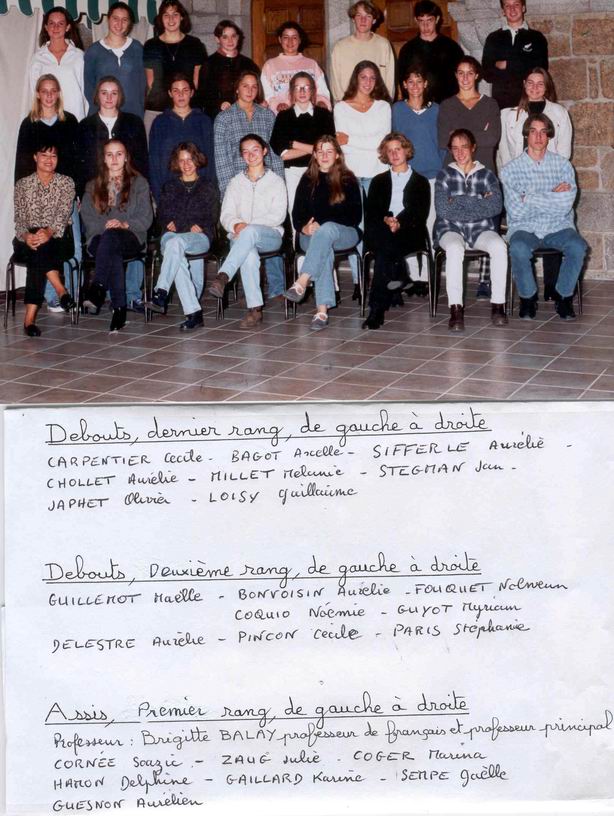 Debouts, dernier rang, de gauche à droite
CARPENTIER Cécile - BAGOT Axelle - SIFFERLE Aurélie -
CHOLLET Aurélie - MILLET Mélanie - STEGMAN Jan -
JAPHET Olivier - LOISY Guillaume
Debouts, Deuxième rang, de gauche à droite
GUILLEMOT Maëlle - BONVOISIN Aurélie - FOUQUET Nolwenn
COQUIO Noémie - GUYOT Myriam
DELESTRE Aurélie - PINCON Cécile - PARIS Stéphanie
Assis, Premier rang, de gauche à droite
Professeur : Brigitte BALAY professeur de français et professeur principal
CORNÉE Soazic - ZAUG Julie - COGER Marina
HAMON Delphine - GAILLARD Karine - SEMPE Gaëlle
GUESNON Aurélien